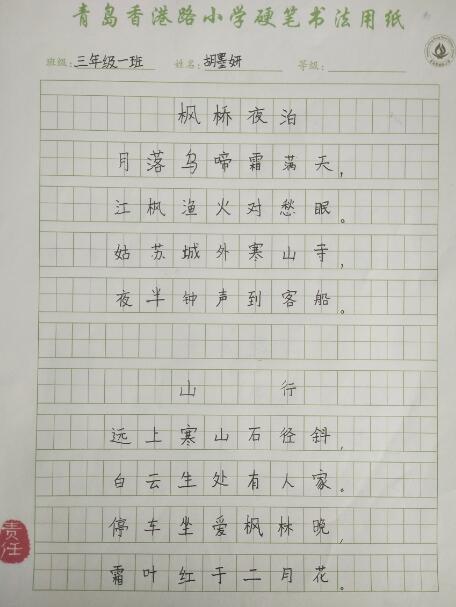 青岛香港路小学硬笔书法用纸
班级:三年级一班 姓名:胡墨妍 等级:
枫桥夜泊
月落乌啼霜满天,
江枫渔火对愁眠。
姑苏城外寒山寺,
夜半钟声到客船。
山行
远上寒山石径斜,
白云生处有人家。
停车坐爱枫林晚,
霜叶红于二月花。
责任